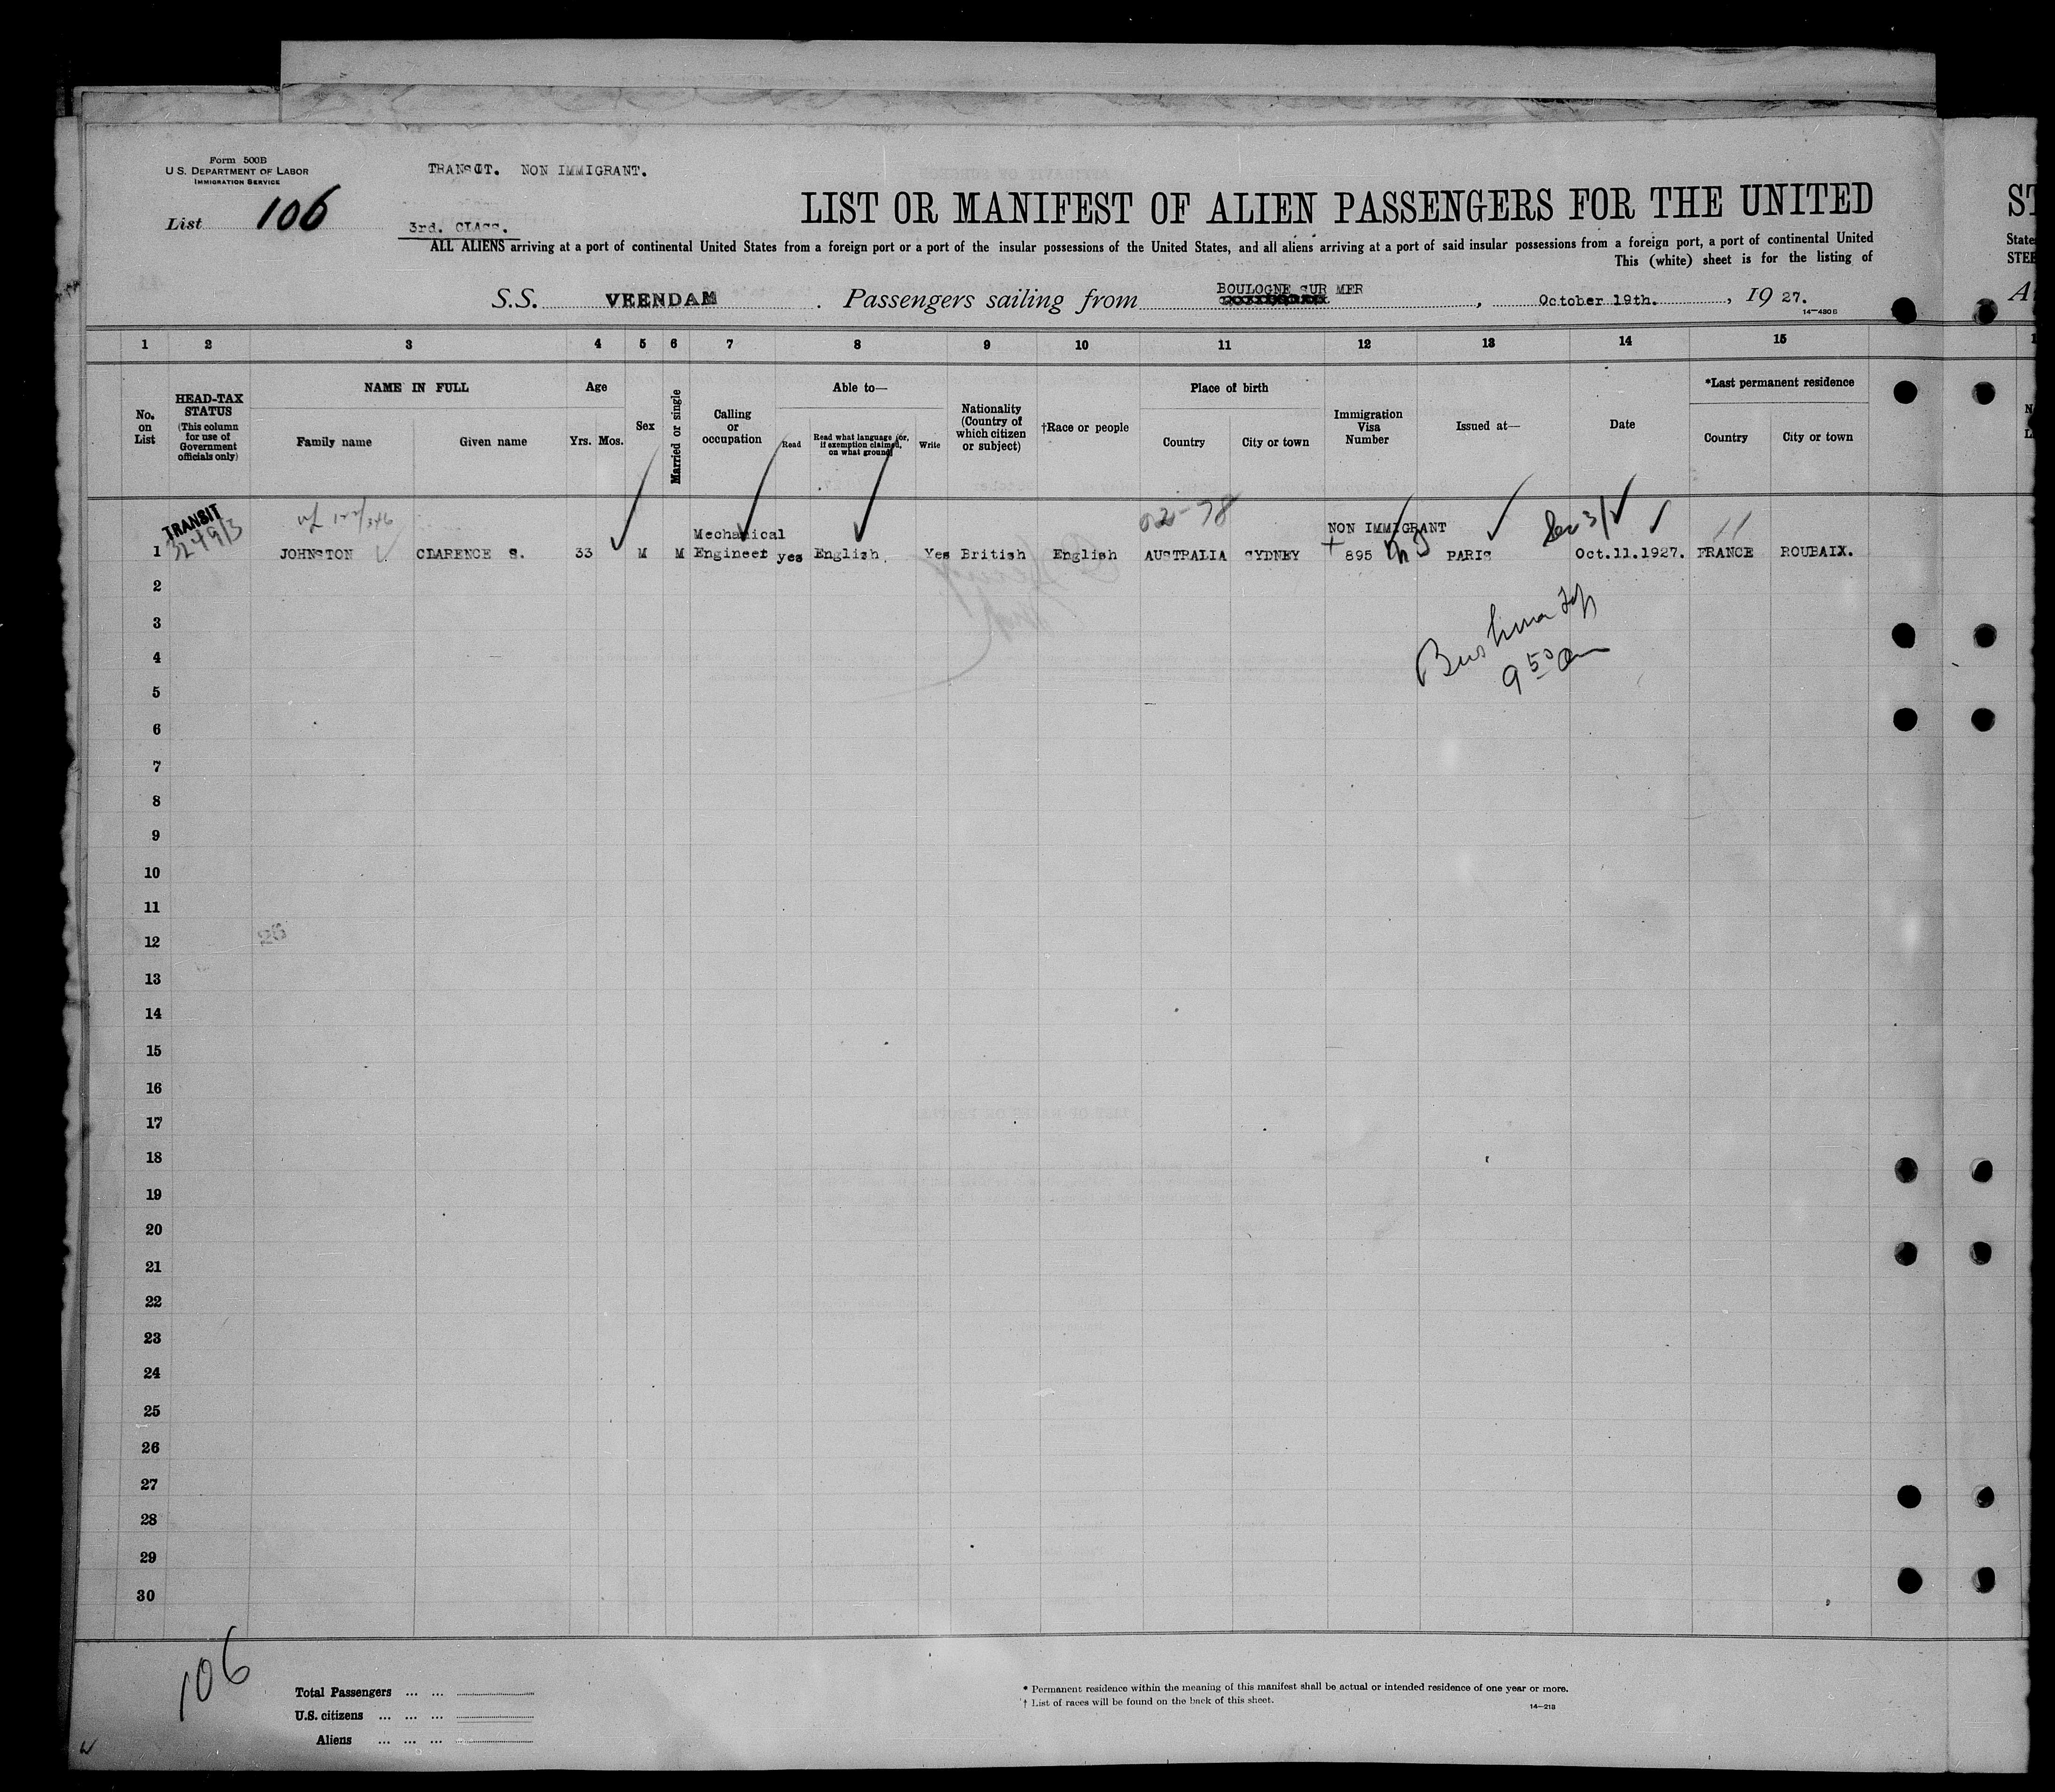 Form 500B
U.S. DEPARTMENT OF LABOR
IMMIGRATION SERVICE
TRANSIT. NON IMMIGRANT.
List 106
3rd. CLASS.
LIST OR MANIFEST OF ALIEN PASSENGERS FOR THE UNITED
ST
ALL ALIENS arriving at a port of continental United States from a foreign port or a port of the insular possessions of the United States, and all aliens arriving at a port of said insular possessions from a foreign port, a port of continental United
State
This (white) sheet is for the listing of
STEE
S.S. VEENDAM. Passengers sailing from BOULOGNE SUR MER, October 19th., 1927.
14—480 B
1 2 3 4 5 6 7 8 9 10 11 12 13 14 15
No. on List
HEAD-TAX STATUS
(This column for use of Government officials only)
NAME IN FULL
Family name Given name
Age
Yrs. Mos.
Sex
Married or single
Calling or occupation
Able to—
Read
Read what language (or, if exemption claimed, on what ground)
Write
Nationality (Country of which citizen or subject)
†Race or people
Place of birth
Country City or town
Immigration Visa Number
Issued at—
Date
*Last permanent residence
Country City or town
TRANSIT
Mechanical NON IMMIGRANT
1 JOHNSTON CLARENCE S. 33 M M Engineer yes English Yes British English AUSTRALIA SYDNEY 895 PARIS Oct.11.1927. FRANCE ROUBAIX.
2
3
4
9 50 am
5
6
7
8
9
10
11
12
26
13
14
15
16
17
18
19
20
21
22
23
24
25
26
27
28
29
30
106
Total Passengers ... ...
U.S. citizens ... ... ...
Aliens ... ... ...
* Permanent residence within the meaning of this manifest shall be actual or intended residence of one year or more.
† List of races will be found on the back of this sheet.
14—218